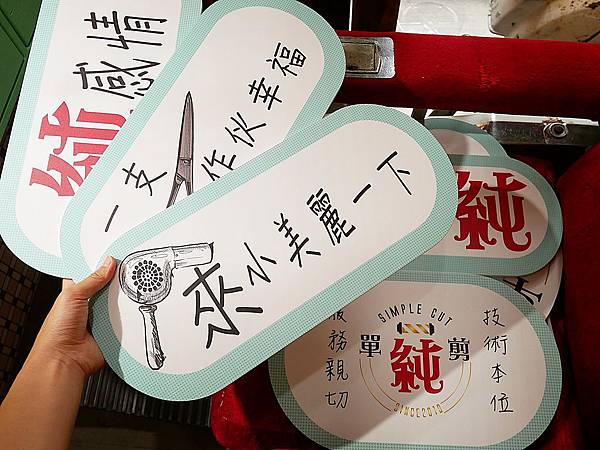 純感情
一支
作伙幸福
來小美麗一下
純
SIMPLE CUT
單純剪
SINCE2013
服務親切
技術本位